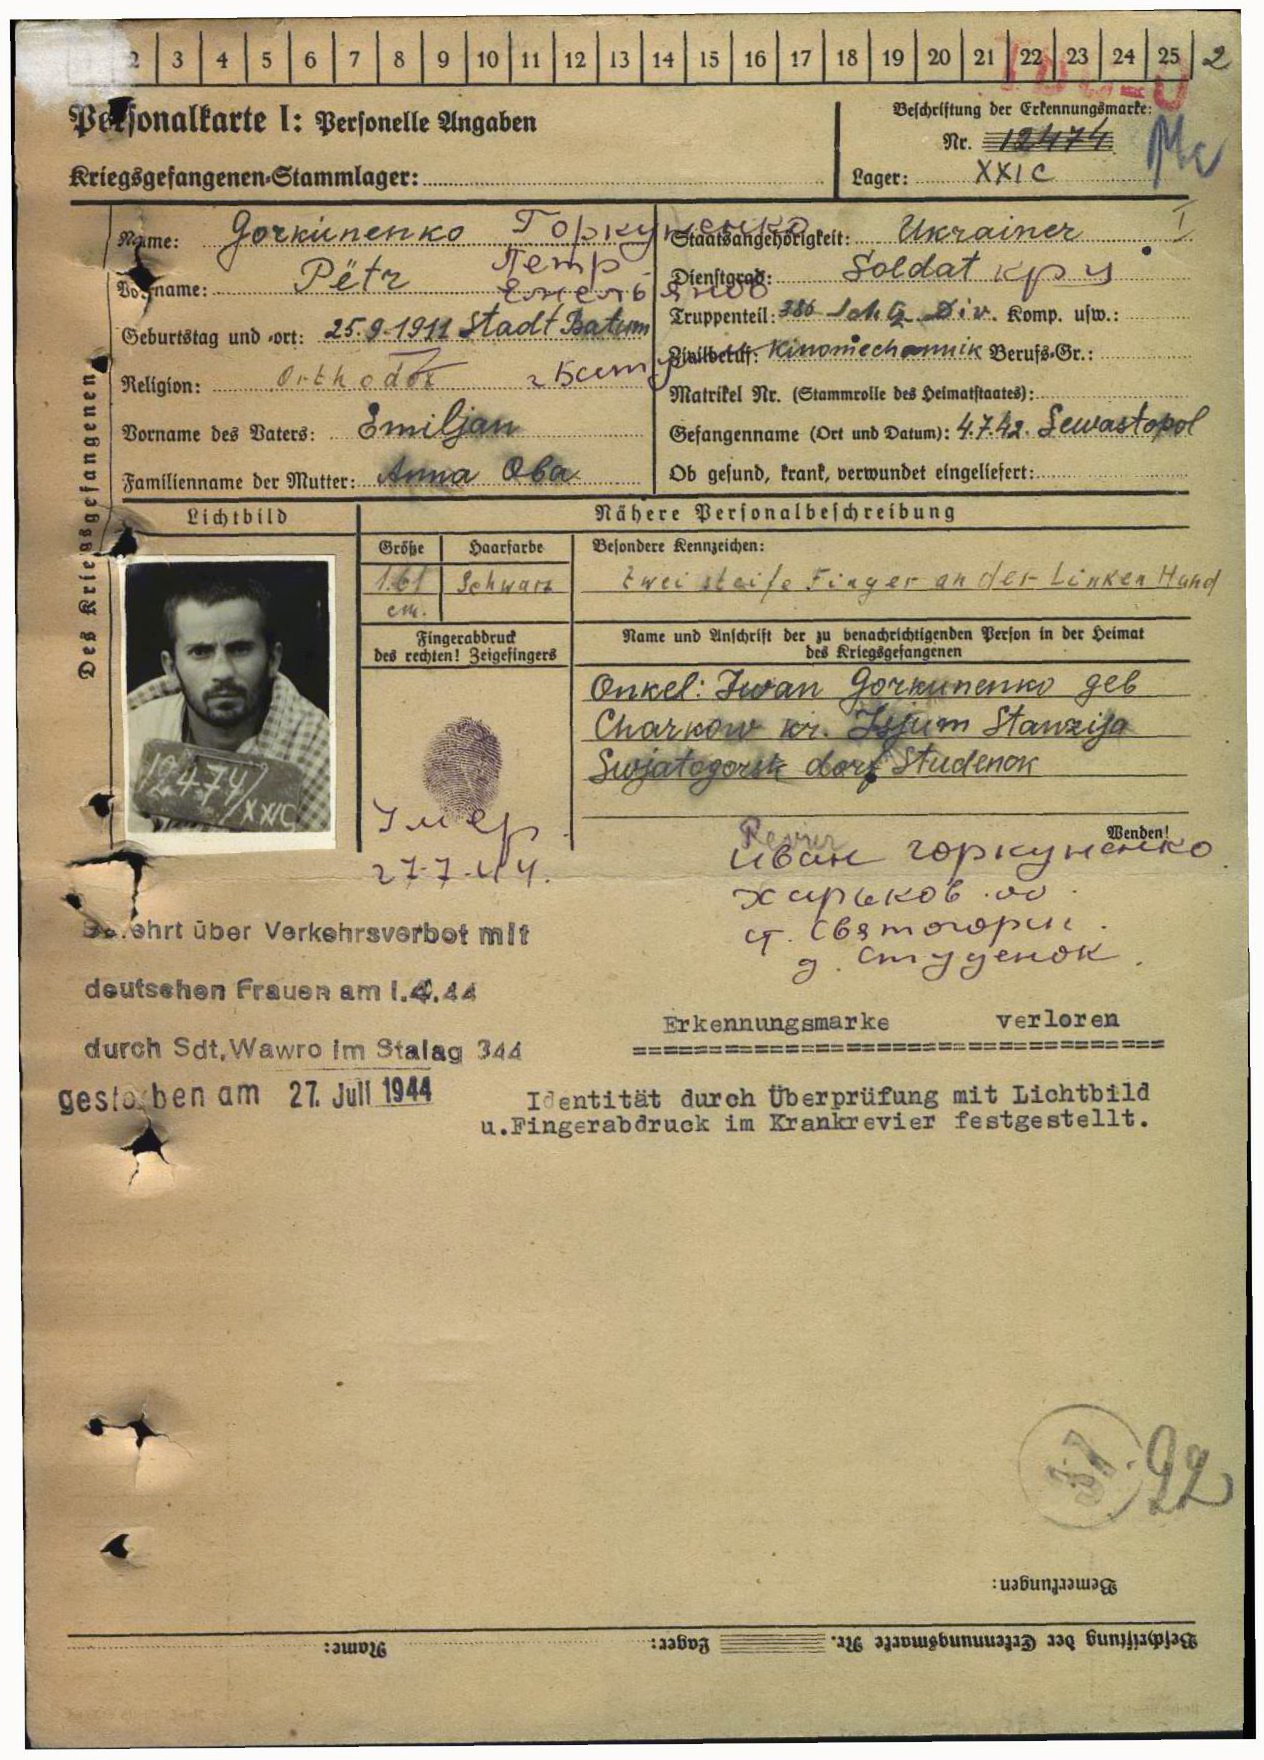 2 3 4 5 6 7 8 9 10 11 12 13 14 15 16 17 18 19 20 21 22 23 24 25 2
Personalkarte I: Personelle Angaben
Beschriftung der Erkennungsmarke:
Nr. 12474
Kriegsgefangenen-Stammlager:
Lager: XXI C
Des Kriegsgefangenen
Name: Gorkunenko Горкуненко
Vorname: Pëtr Петр Емельянов
Geburtstag und -ort: 25.9.1911 Stadt Batum
Religion: Orthodox г Батум
Vorname des Vaters: Emiljan
Familienname der Mutter: Anna Oba
Staatsangehörigkeit: Ukrainer I
Dienstgrad: Soldat кр
Truppenteil: 386 Schtz. Div. Komp. usw.:
Zivilberuf: Kinomechannik Berufs-Gr.:
Matrikel Nr. (Stammrolle des Heimatstaates):
Gefangenname (Ort und Datum): 4.7.42. Sewastopol
Ob gesund, krank, verwundet eingeliefert:
Lichtbild
Nähere Personalbeschreibung
Größe Haarfarbe Besondere Kennzeichen:
1.61 Schwarz zwei steife Finger an der Linken Hand
cm.
Fingerabdruck
des rechten! Zeigefingers
Name und Anschrift der zu benachrichtigenden Person in der Heimat
des Kriegsgefangenen
Onkel: Iwan Gorkunenko geb
Charkow kr. Isjum Stanzija
Swjatogorsk dorf Studenok
12474/
XXIC
Умер
27.7.44.
Wenden!
Revier
Иван Горкуненко
Харьков. оо.
ст. Святогорск.
д. Студенок.
Belehrt über Verkehrsverbot mit
deutschen Frauen am 1.4.44
durch Sdt. Wawro im Stalag 344
gestorben am 27. Juli 1944
Erkennungsmarke verloren
===================================
Identität durch Überprüfung mit Lichtbild
u.Fingerabdruck im Krankrevier festgestellt.
92
Bemerkungen:
Beschriftung der Erkennungsmarke Nr. Lager: Name: